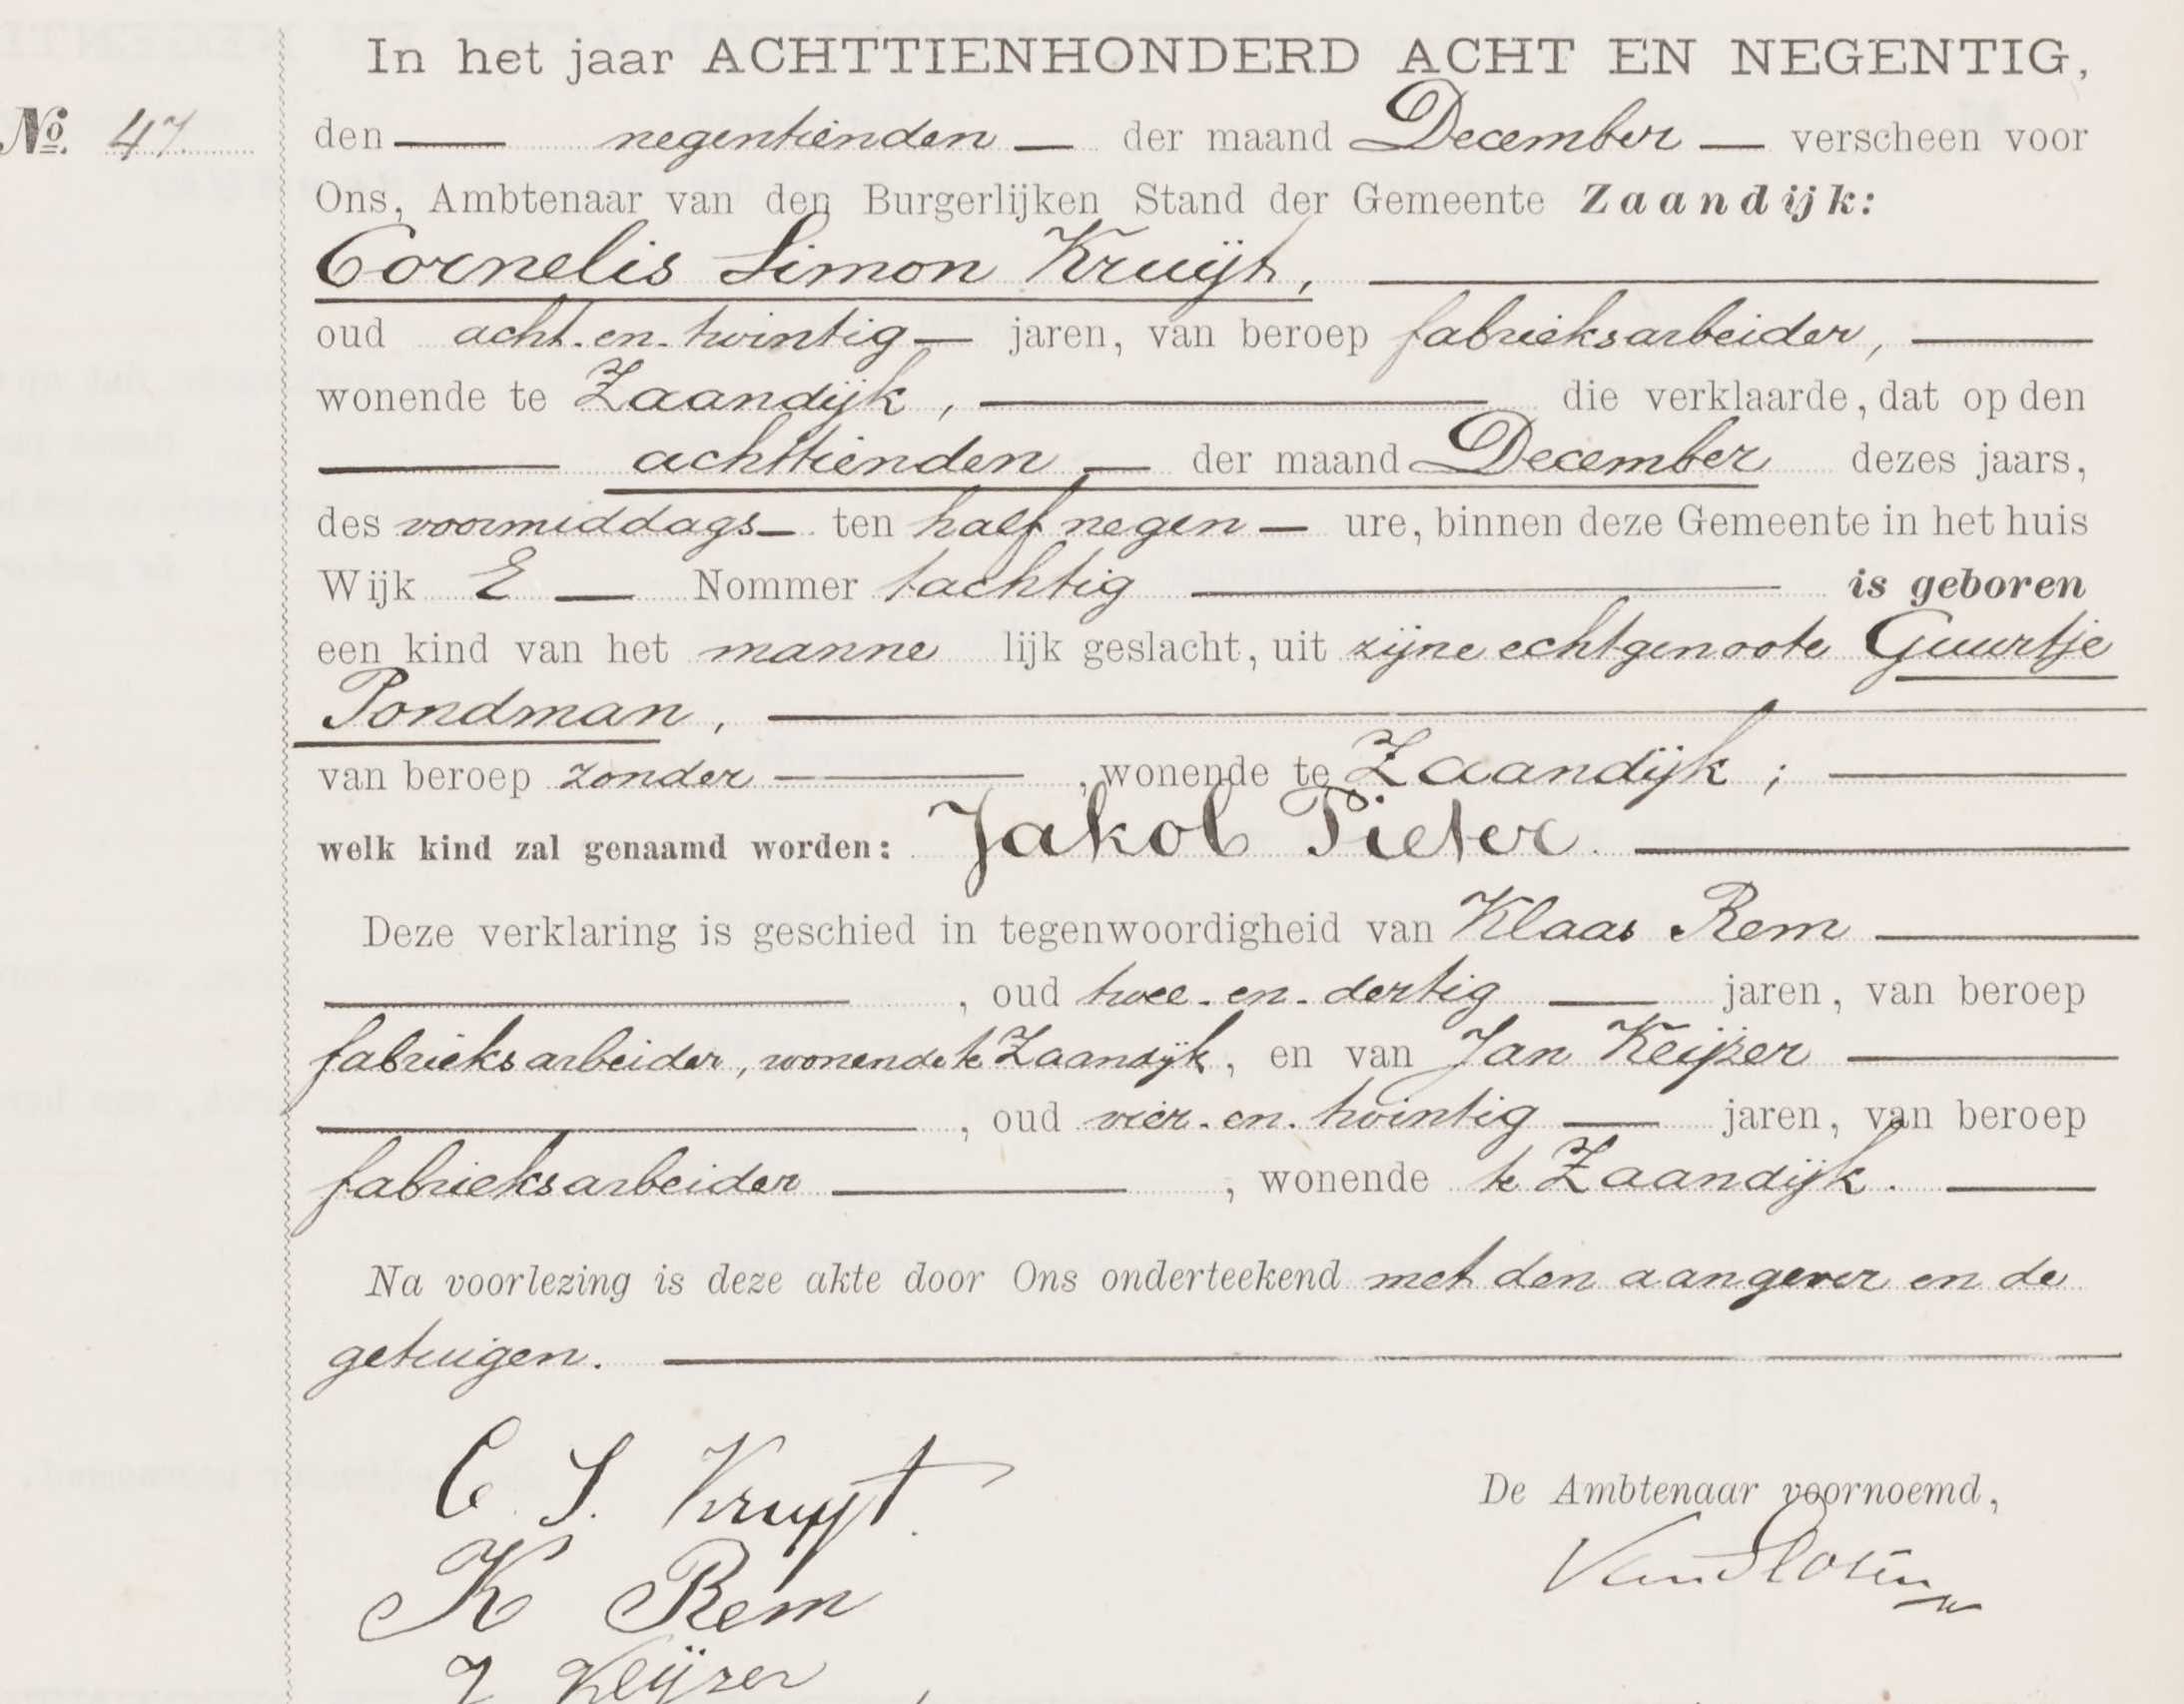 In het jaar ACHTTIENHONDERD ACHT EN NEGENTIG,
No. 47 den negentienden der maand December verscheen voor
Ons, Ambtenaar van den Burgerlijken Stand der Gemeente Zaandijk:
Cornelis Simon Kruijt,
oud acht-en-twintig jaren, van beroep fabrieksarbeider,
wonende te Zaandijk, die verklaarde, dat op den
achttienden der maand December dezes jaars,
des voormiddags ten half negen ure, binnen deze Gemeente in het huis
Wijk E Nommer tachtig is geboren
een kind van het manne lijk geslacht, uit zijne echtgenoote Guurtje
Pondman,
van beroep zonder, wonende te Zaandijk;
welk kind zal genaamd worden: Jakob Pieter.
Deze verklaring is geschied in tegenwoordigheid van Klaas Rem
, oud twee-en-dertig jaren, van beroep
fabrieksarbeider, wonende te Zaandijk, en van Jan Keijzer
, oud vier-en-twintig jaren, van beroep
fabrieksarbeider, wonende te Zaandijk.
Na voorlezing is deze akte door Ons onderteekend met den aangever en de
getuigen.
C. S. Kruyt.
De Ambtenaar voornoemd,
K Rem
J Keijzer